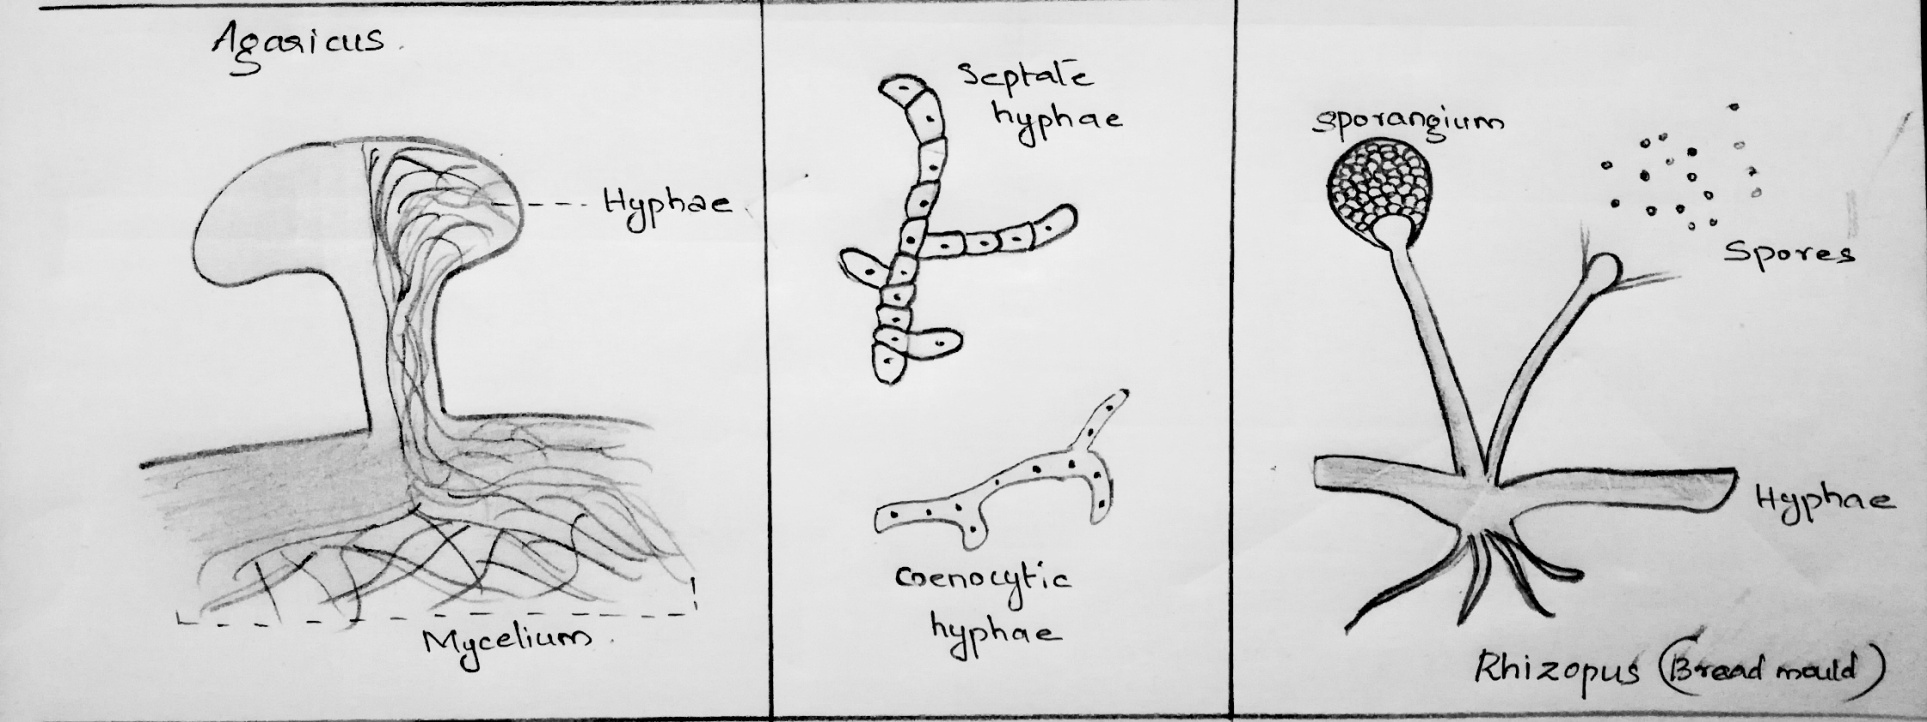 Agaricus.
Hyphae.
Mycelium.
Septate
hyphae
Coenocytic
hyphae
Sporangium
Spores
Hyphae
Rhizopus (Bread mould)